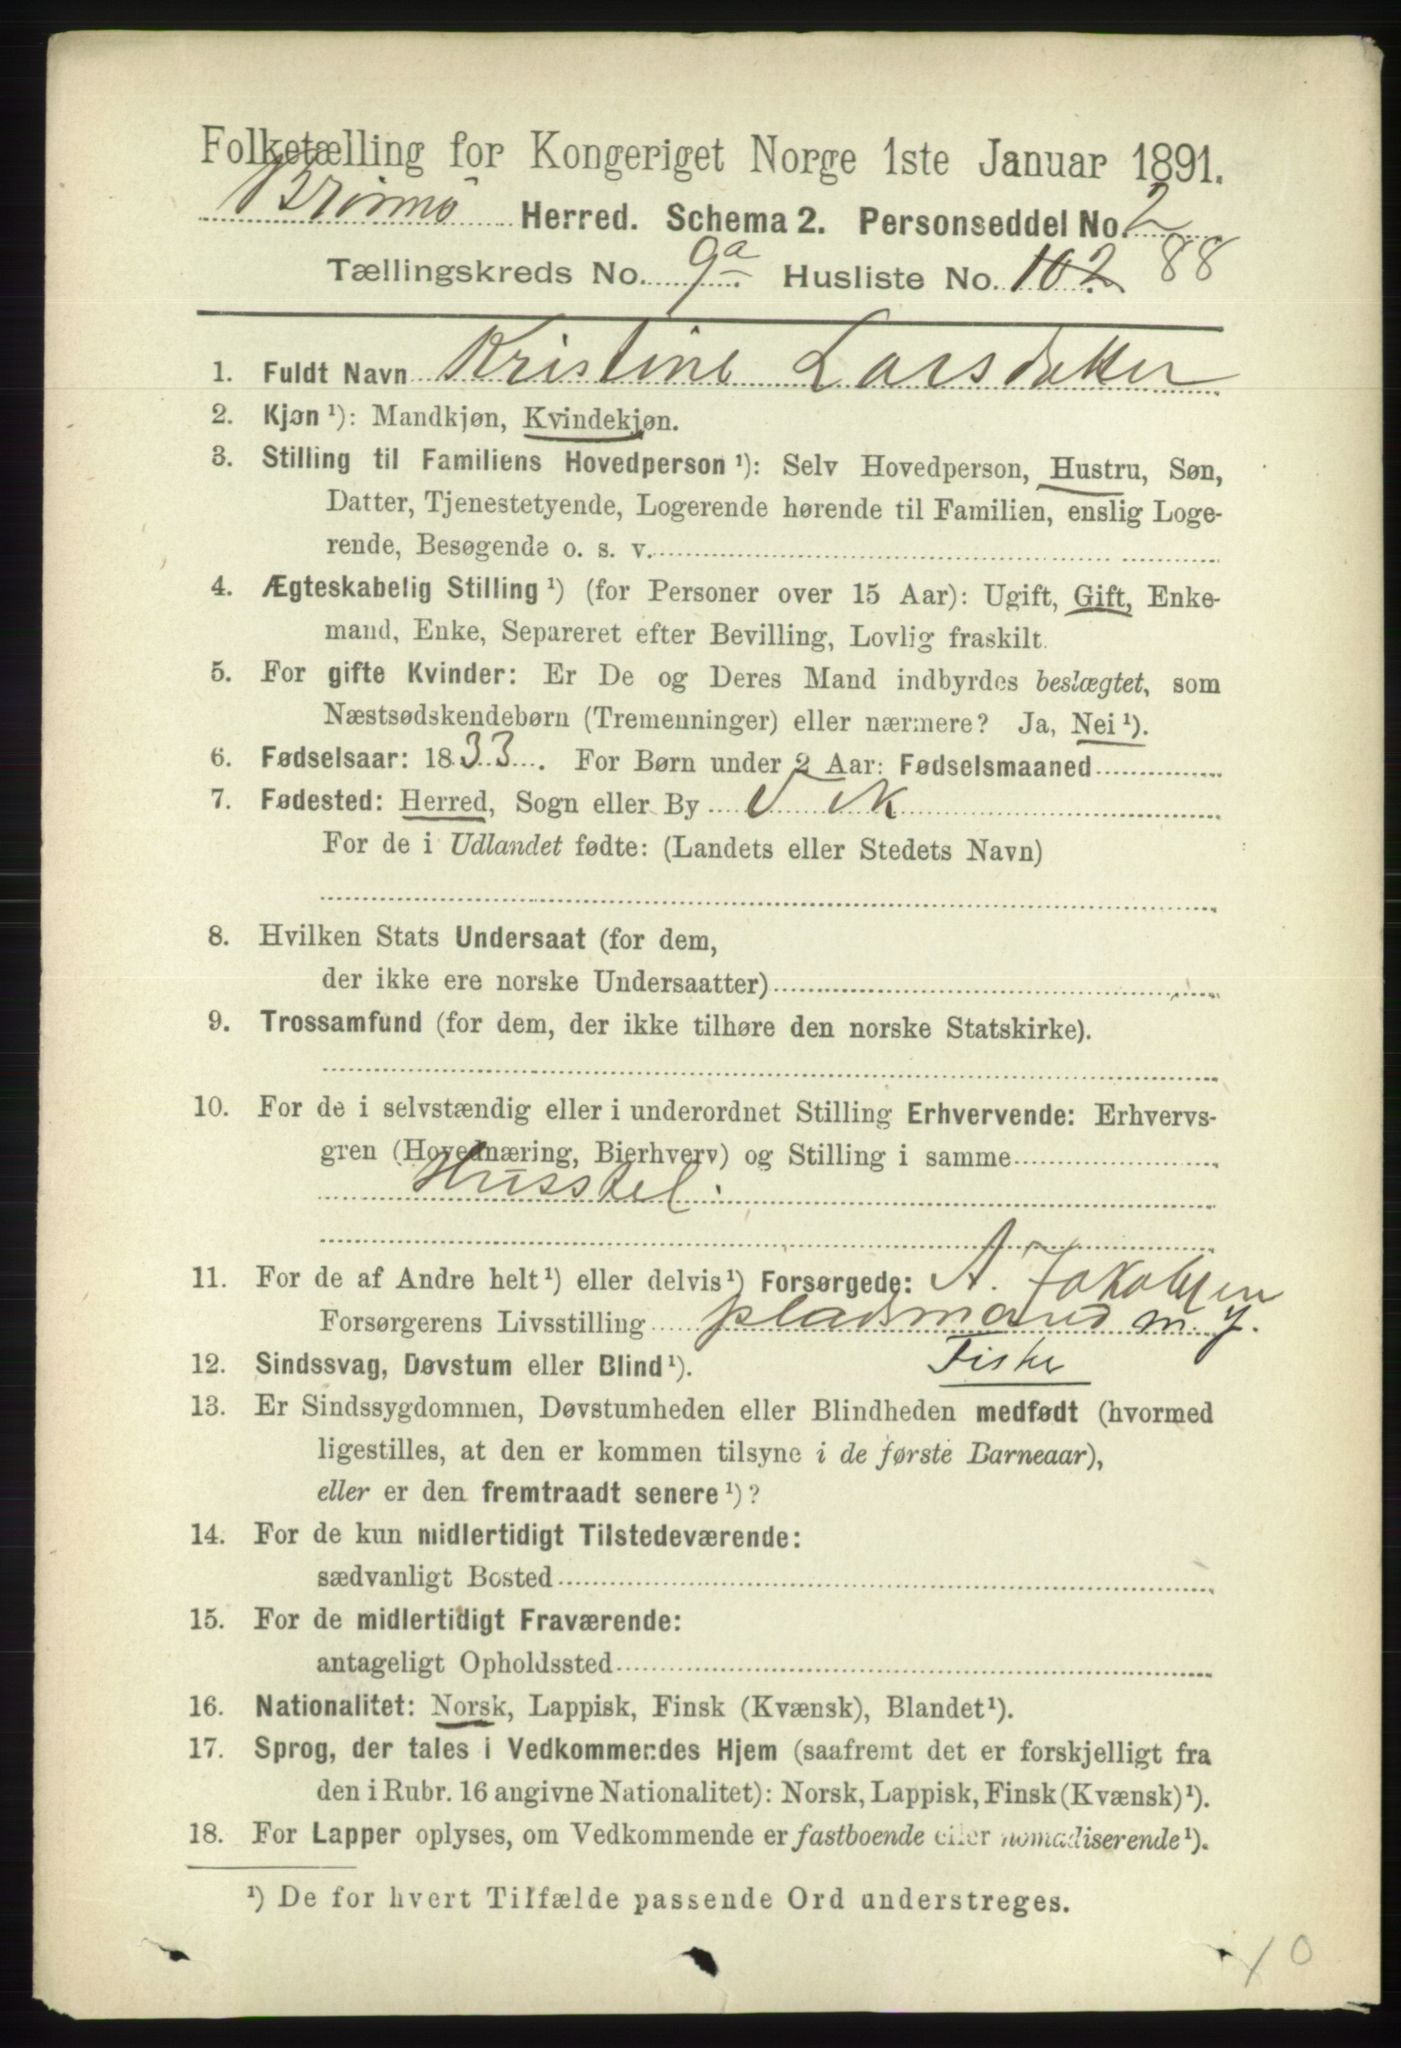 Folketælling for Kongeriget Norge 1ste Januar 1891.
Brønnø Herred. Schema 2. Personseddel No. 2
Tællingskreds No. 9a Husliste No. 102 88
1. Fuldt Navn Kristine Larsdatter
2. Kjøn ¹): Mandkjøn, Kvindekjøn.
3. Stilling til Familiens Hovedperson ¹): Selv Hovedperson, Hustru, Søn,
Datter, Tjenestetyende, Logerende hørende til Familien, enslig Loge-
rende, Besøgende o. s. v.
4. Ægteskabelig Stilling ¹) (for Personer over 15 Aar): Ugift, Gift, Enke-
mand, Enke, Separeret efter Bevilling, Lovlig fraskilt.
5. For gifte Kvinder: Er De og Deres Mand indbyrdes beslægtet, som
Næstsødskendebørn (Tremenninger) eller nærmere? Ja, Nei ¹).
6. Fødselsaar: 1833. For Børn under 2 Aar: Fødselsmaaned
7. Fødested: Herred, Sogn eller By Vik
For de i Udlandet fødte: (Landets eller Stedets Navn)
8. Hvilken Stats Undersaat (for dem,
der ikke ere norske Undersaatter)
9. Trossamfund (for dem, der ikke tilhøre den norske Statskirke).
10. For de i selvstændig eller i underordnet Stilling Erhvervende: Erhvervs-
gren (Hovednæring, Bierhverv) og Stilling i samme
Husstel.
11. For de af Andre helt ¹) eller delvis ¹) Forsørgede: A. Jakobsen
Forsørgerens Livsstilling pladsmand m. j.
12. Sindssvag, Døvstum eller Blind ¹). Fisker
13. Er Sindssygdommen, Døvstumheden eller Blindheden medfødt (hvormed
ligestilles, at den er kommen tilsyne i de første Barneaar),
eller er den fremtraadt senere ¹)?
14. For de kun midlertidigt Tilstedeværende:
sædvanligt Bosted
15. For de midlertidigt Fraværende:
antageligt Opholdssted
16. Nationalitet: Norsk, Lappisk, Finsk (Kvænsk), Blandet ¹).
17. Sprog, der tales i Vedkommendes Hjem (saafremt det er forskjelligt fra
den i Rubr. 16 angivne Nationalitet): Norsk, Lappisk, Finsk (Kvænsk) ¹).
18. For Lapper oplyses, om Vedkommende er fastboende eller nomadiserende ¹).
¹) De for hvert Tilfælde passende Ord understreges.